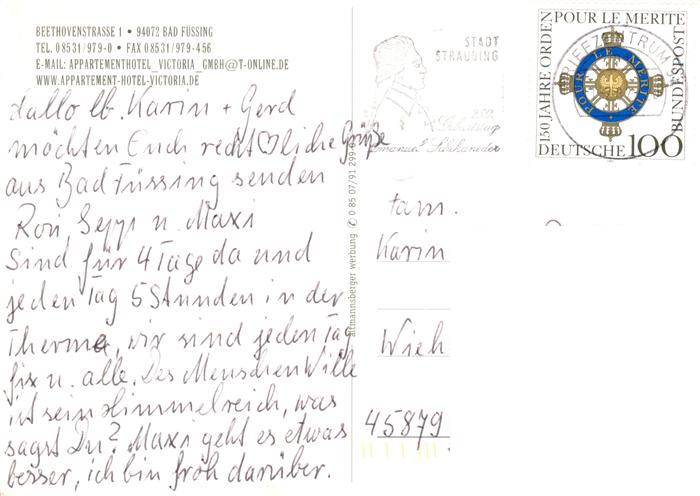 BEETHOVENSTRASSE 1 • 94072 BAD FÜSSING
TEL. 08531/979-0 • FAX 08531/979-456
E-MAIL: APPARTEMENTHOTEL_VICTORIA_GMBH@T-ONLINE.DE
WWW.APPARTEMENT-HOTEL-VICTORIA.DE
Hallo lb. Karin + Gerd
möchten Euch recht ♡liche Grüße
aus Bad Füssing senden
Rori, Sepp u. Maxi
Sind für 4 Tage da und
jeden Tag 5 Stunden in der
Therme, wir sind jeden Tag
fix u. alle. Des Menschen Wille
ist sein Himmelreich, was
sagst Du? Maxi geht es etwas
besser, ich bin froh darüber.
attmannsberger werbung ✆ 0 85 07/91 299
STADT
STRAUBING
250.
Geburtstag
Emanuel Schikaneder
BRIEFZENTRUM
150 JAHRE ORDEN POUR LE MERITE
POUR LE MERITE
DEUTSCHE BUNDESPOST
100
Fam.
Karin
Wieh
45879